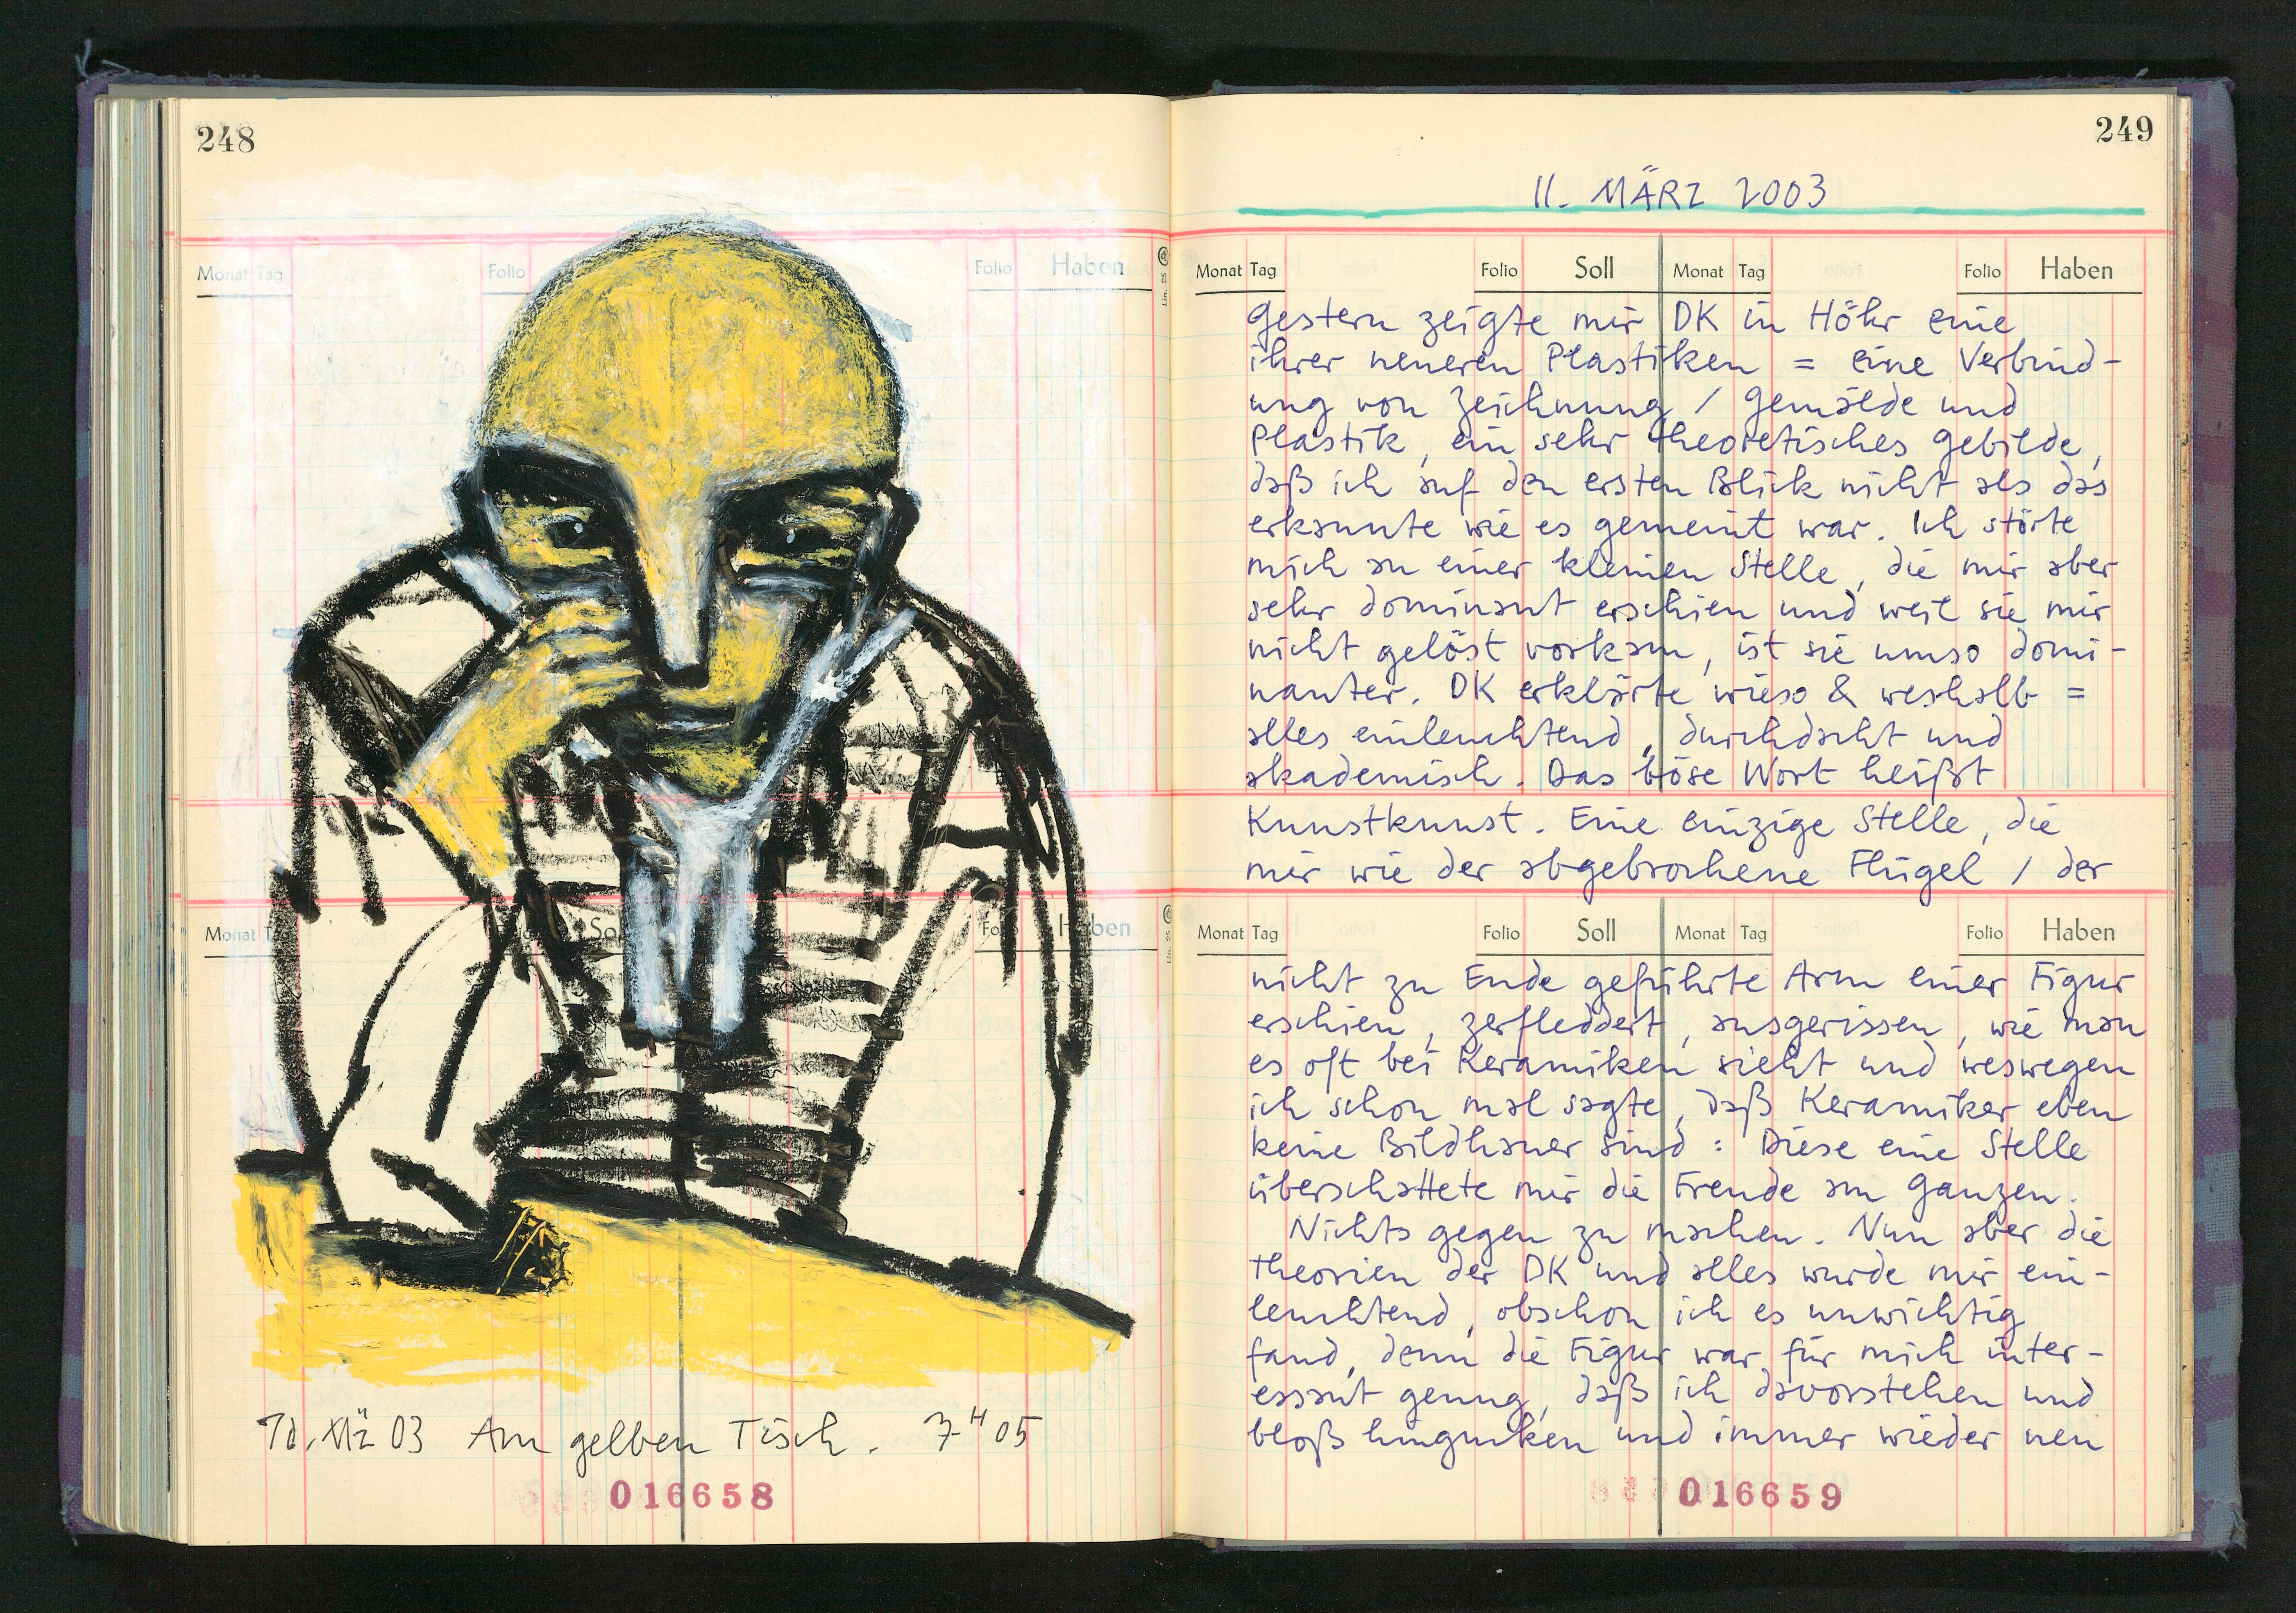 248
Monat Tag Folio Folio Haben
Monat Folio Haben
10. Mä 03 Am gelben Tisch. 7H 05
016658
249
11. MÄRZ 2003
Monat Tag Folio Soll Monat Tag Folio Haben
Gestern zeigte mir DK in Höhr eine
ihrer neueren Plastiken = eine Verbind-
ung von Zeichnung / Gemälde und
Plastik, ein sehr theoretisches Gebilde,
daß ich auf den ersten Blick nicht als das
erkannte wie es gemeint war. Ich störte
mich an einer kleinen Stelle, die mir aber
sehr dominant erschien und weil sie mir
nicht gelöst vorkam, ist sie umso domi-
nanter. DK erklärte wieso & weshalb =
alles einleuchtend, durchdacht und
akademisch. Das böse Wort heißt
Kunstkunst. Eine einzige Stelle, die
mir wie der abgebrochene Flügel / der
Monat Tag Folio Soll Monat Tag Folio Haben
nicht zu Ende geführte Arm einer Figur
erschien, zerfleddert, ausgerissen, wie man
es oft bei Keramiken sieht und weswegen
ich schon mal sagte, daß Keramiker eben
keine Bildhauer sind : Diese eine Stelle
überschattete mir die Freude am Ganzen.
Nichts gegen zu machen. Nun aber die
Theorien der DK und alles wurde mir ein-
leuchtend, obschon ich es unwichtig
fand, denn die Figur war für mich inter-
essant genug, daß ich davorstehen und
bloß hingucken und immer wieder neu
016659